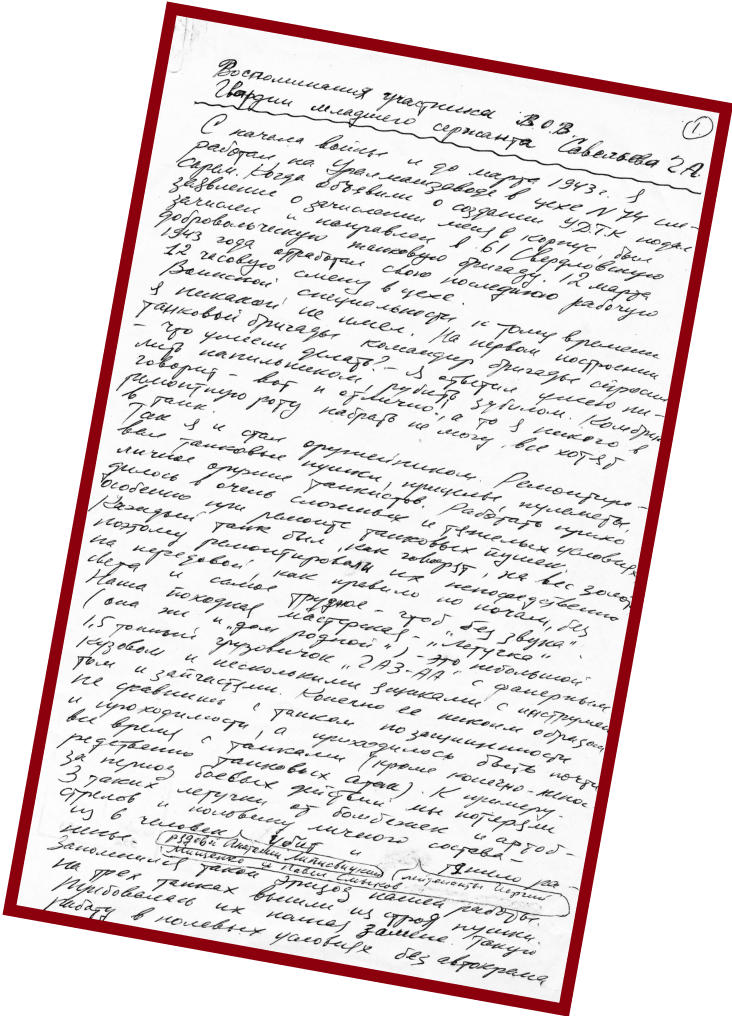 Воспоминания участника В.О.В.
Гвардии младшего сержанта Савельева Г.А.
1
С начала войны и до марта 1943 г. я
работал на Уралмашзаводе в цехе N 74 сле-
сарем. Когда объявили о создании УДТК подал
заявление о зачислении меня в корпус, был
зачислен и направлен в 61 Свердловскую
добровольческую танковую бригаду. 12 марта
1943 года отработал свою последнюю рабочую
12 часовую смену в цехе.
Воинской специальности к тому времени
я никакой не имел. На первом построении
танковой бригады командир бригады спросил
- что умеем делать? - Я ответил умею пи-
лить напильником, рубить зубилом. Комбриг
говорит - вот и отлично, а то я никого в
ремонтную роту набрать не могу, все хотят
в танк.
Так я и стал оружейником. Ремонтиро-
вал танковые пушки, прицелы, пулеметы,
личное оружие танкистов. Работать прихо
дилось в очень сложных и тяжелых условиях
особенно при ремонте танковых пушек.
Каждый танк был, как говорят, на вес золот
поэтому ремонтировали их непосредственно
на передовой, как правило по ночам, без
света и самое трудное - чтоб "без звука".
Наша походная мастерская - "летучка"
(она же и "дом родной"), это небольшой
1,5 тонный грузовичок "ГАЗ-АА" с фанерным
кузовом и несколькими ящиками с инструмен
том и запчастями. Конечно ее никоим образом
не сравнишь с танком по защищенности
и проходимости, а приходилось быть почти
все время с танками (кроме конечно непос
редственно танковых атак). К примеру
за период боевых действий мы потеряли
3 таких летучки от бомбежек и артоб-
стрелов и половину личного состава -
из 6 человек 1 убит и тяжело ра-
нены
рядовой Анатолий
Мищенко и Павел
сержанты Георгий
Запомнился такой эпизод нашей работы.
на трех танках вышли из строя пушки.
Требовалась их полная замена. Такую
работу в полевых условиях без автокрана